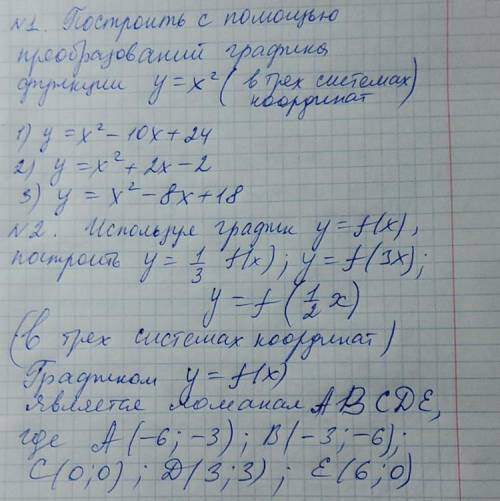 N1. Построить с помощью
преобразований графика
функции y = x² (в трех системах координат)
1) y = x² - 10x + 24
2) y = x² + 2x - 2
3) y = x² - 8x + 18
N2. Используя график y = f(x),
построить y = 1/3 f(x); y = f(3x);
y = f(1/2 x)
(в трех системах координат)
Графиком y = f(x)
является ломаная ABCDE,
где A(-6; -3); B(-3; -6);
C(0; 0); D(3; 3); E(6; 0)